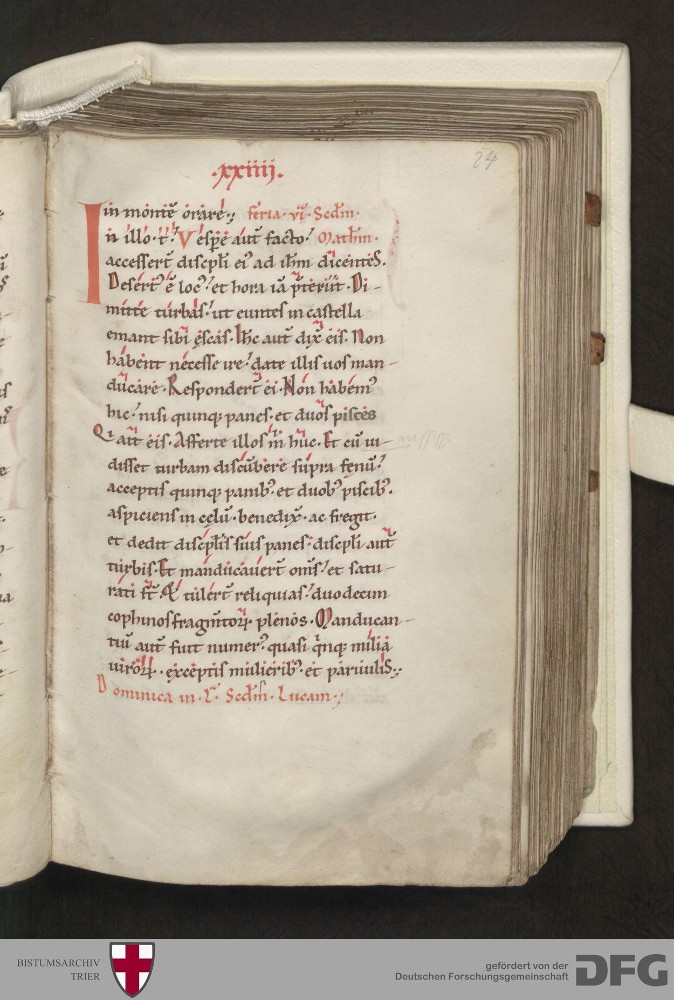 ·xxiiij·
24
in monte orare·, feria·vi· Scdm·
In illo·t̄· Vespe aut̄ facto· Mathm·
accesserт̄ discpli ei᾿ ad ihm dicentes·
Desert᾿ ē loc᾿·et hora iā p̄teriit·Di-
mitte turbas·ut euntes in castella
emant sibi ęscas·Ihc aut̄ dix̄ eis· Non
habent necesse ire·date illis uos man-
ducare·Respondert̄ ei·Non habem᾿
hic·nisi quinq; panes·et duos pisces
Qi ait eis·Afferte illos m̄ huc·Et cū ui-
disset turbam discubere supra fenū·
acceptis quinq; panib᾿·et duob᾿ piscib᾿·
aspiciens in cęlū·benedix̄·ac fregit·
et dedit discplis suis panes·discpli aut̄
turbis·Et manducauert̄ om̄s·et satu-
rati st̄·Et tulert̄ reliquias·duodecim
cophinos fragm̄torꝝ plenos·Manducan-
tiū aut̄ fuit numer᾿·quasi q̄nq; milia
uirorꝝ·exceptis mulierib᾿·et paruulis·,
Dominica in·L·Scdm·Lucam·,
BISTUMSARCHIV
TRIER
gefördert von der
Deutschen Forschungsgemeinschaft
DFG